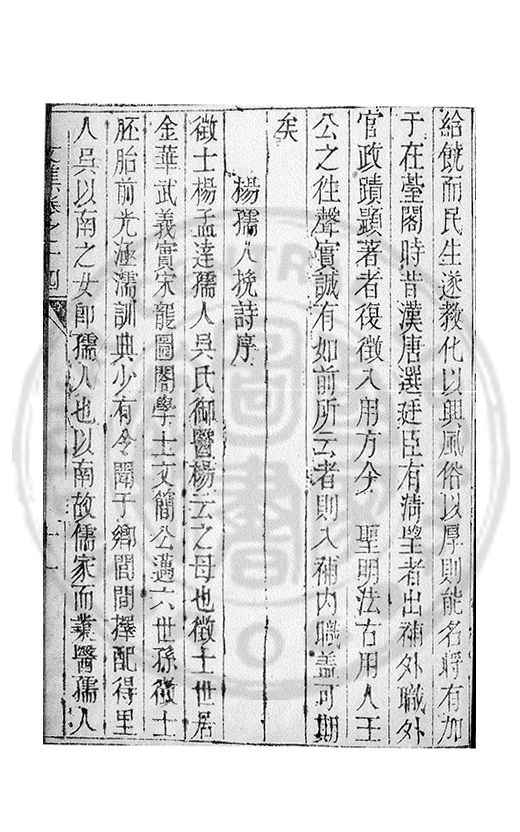 給饒而民生遂教化以興風俗以厚則能名將有加
于在臺閣時昔漢唐選廷臣有清望者出補外職外
官政蹟顯著者復徵入用方今　聖明法右用人王
公之徃聲實誠有如前所云者則入補内職蓋可期
矣
楊孺人挽詩序
徵士楊孟達孺人吳氏御醫楊云之母也徵士世居
金華武義實宋龍圖閣學士文簡公邁六世孫徵士
胚胎前光涵濡訓典少有令聞于鄉閭間擇配得里
人吳以南之女即孺人也以南故儒家而業醫孺人